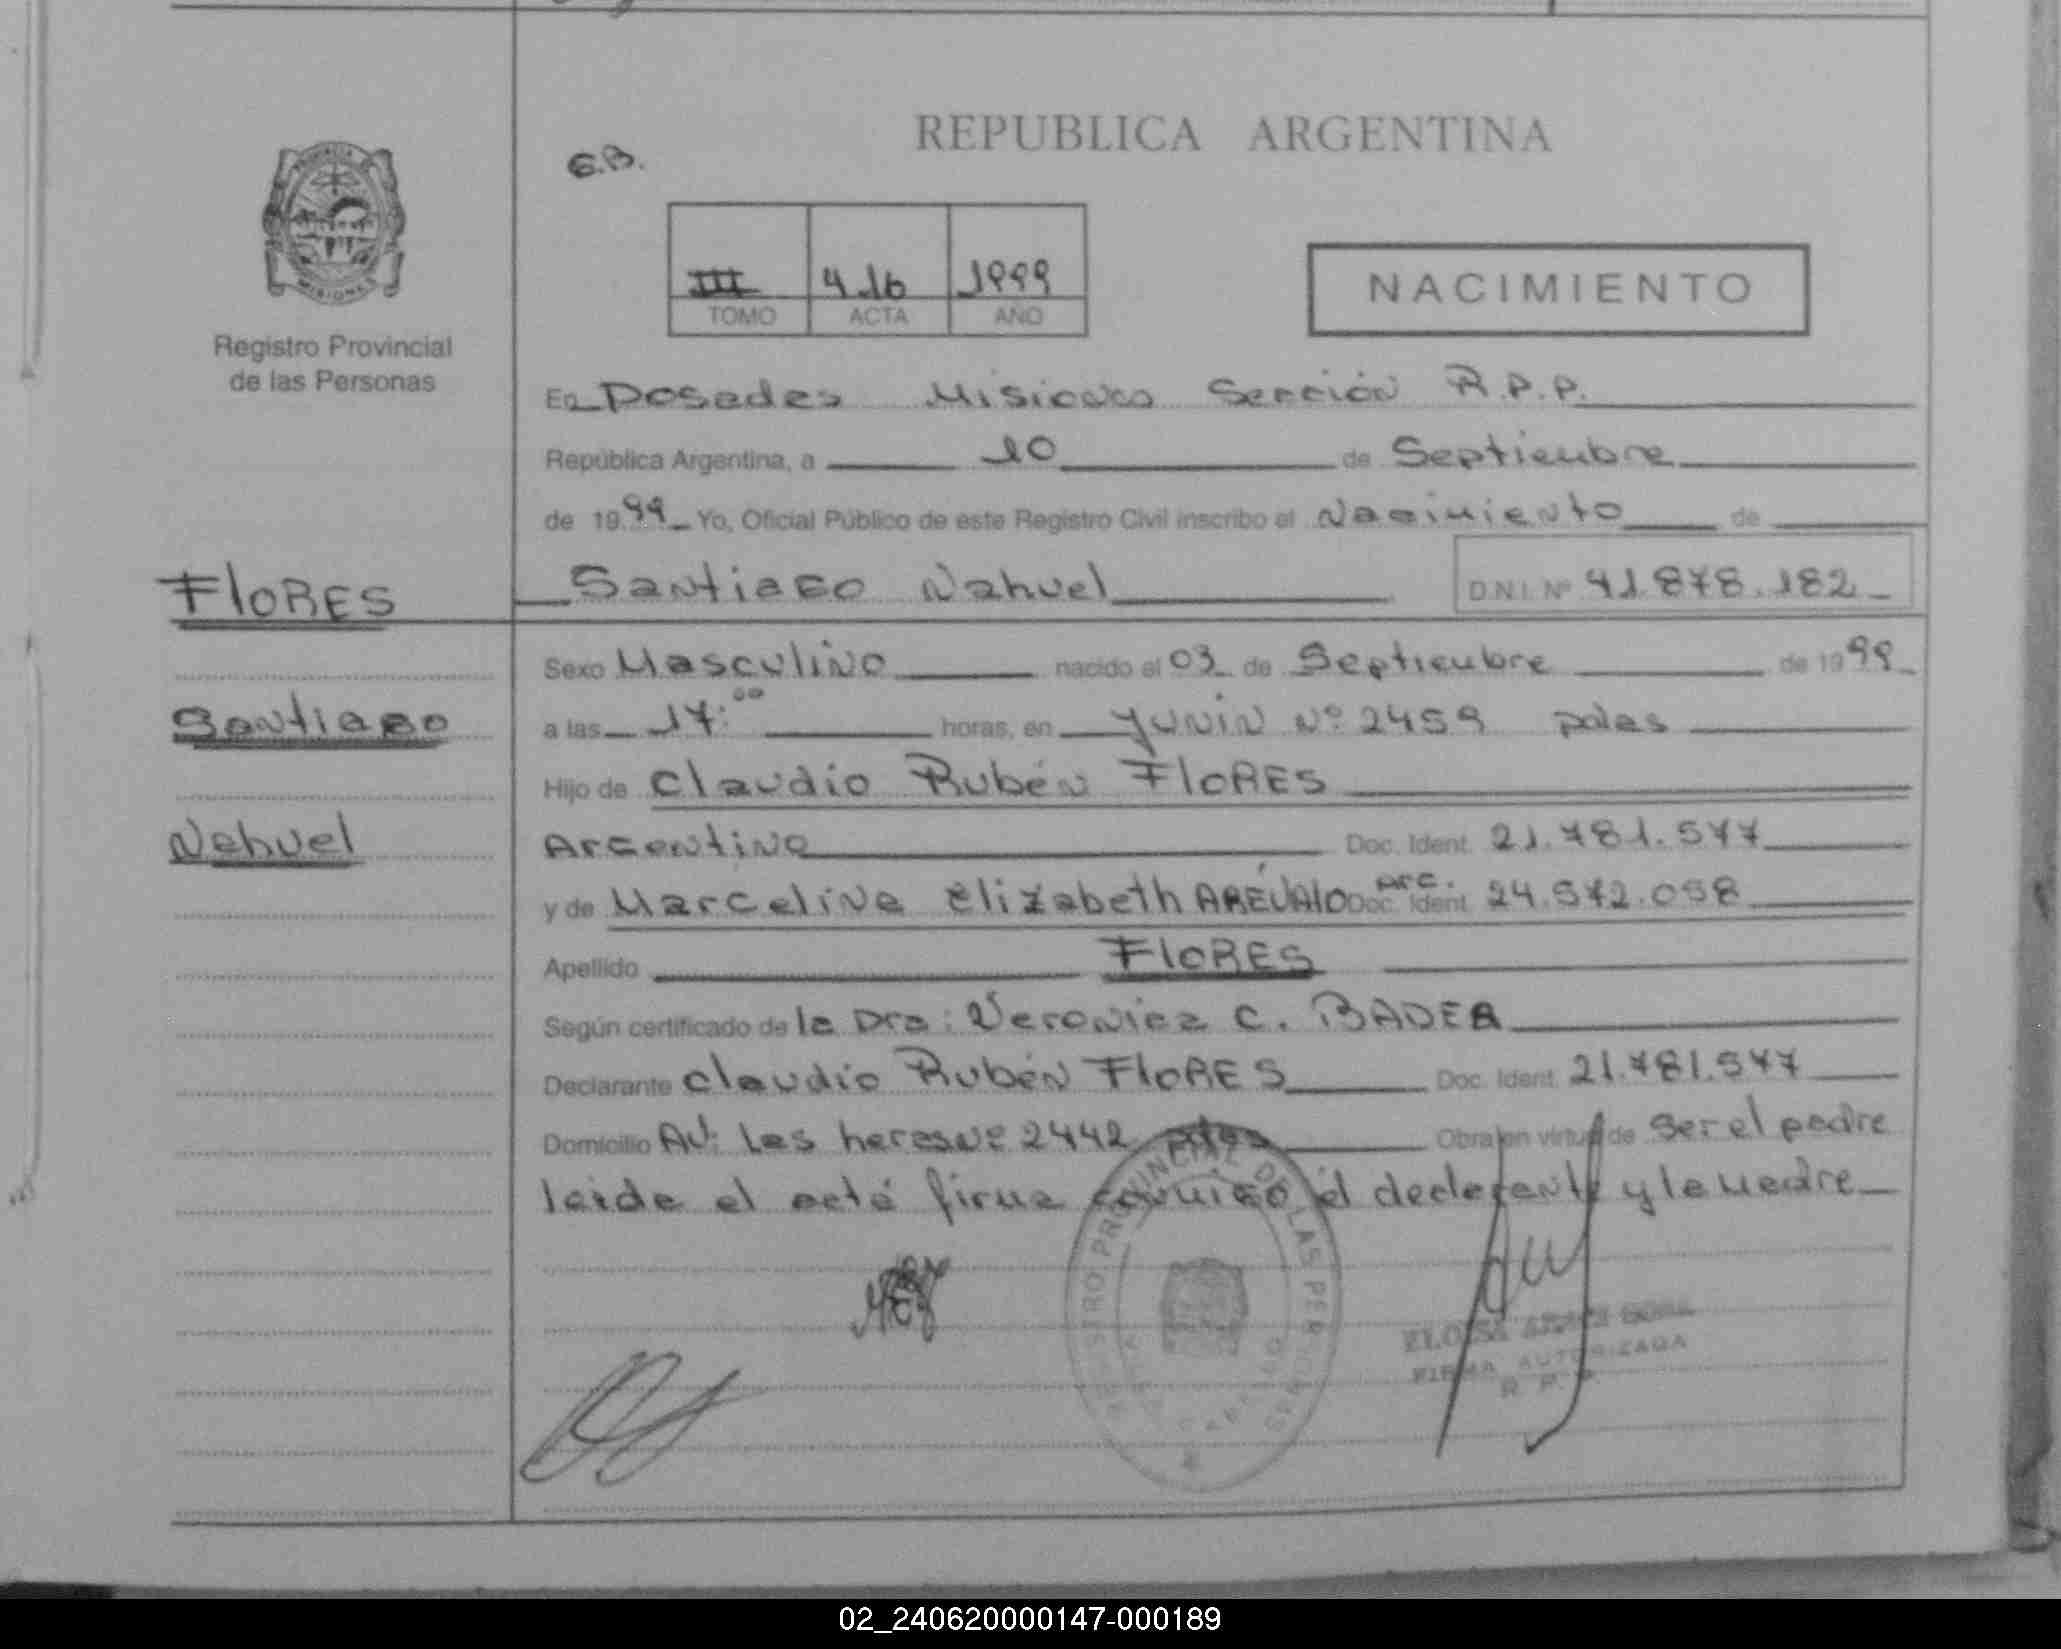 REPUBLICA ARGENTINA
G.B.
PROVINCIA
MISIONES
III 416 1999
TOMO ACTA AÑO
NACIMIENTO
Registro Provincial
de las Personas
En Posadas Misiones Sección R.P.P.
República Argentina, a 10 de Septiembre
de 1999 Yo, Oficial Público de este Registro Civil inscribo el Nacimiento de
FLORES
Santiago Nahuel D.N.I. Nº 41.878.182
Sexo Masculino nacido el 03 de Septiembre de 1999
Santiago
a las 17:00 horas, en Junín Nº 2459 pdas
Hijo de Claudio Rubén FLORES
Nahuel
Argentino Doc. Ident. 21.781.577
y de Marcelina Elizabeth ARÉVALO Arg. Doc. Ident. 24.572.098
Apellido FLORES
Según certificado de la Dra: Veronica C. BADER
Declarante Claudio Rubén FLORES Doc. Ident. 21.781.577
Domicilio AV: Las heras Nº 2442 pdas Obra en virtud de ser el padre
leida el acta firma conmigo el declarante y la madre
REGISTRO PROVINCIAL DE LAS PERSONAS
ELOISA
FIRMA AUTORIZADA
R. P. P.
02_240620000147-000189